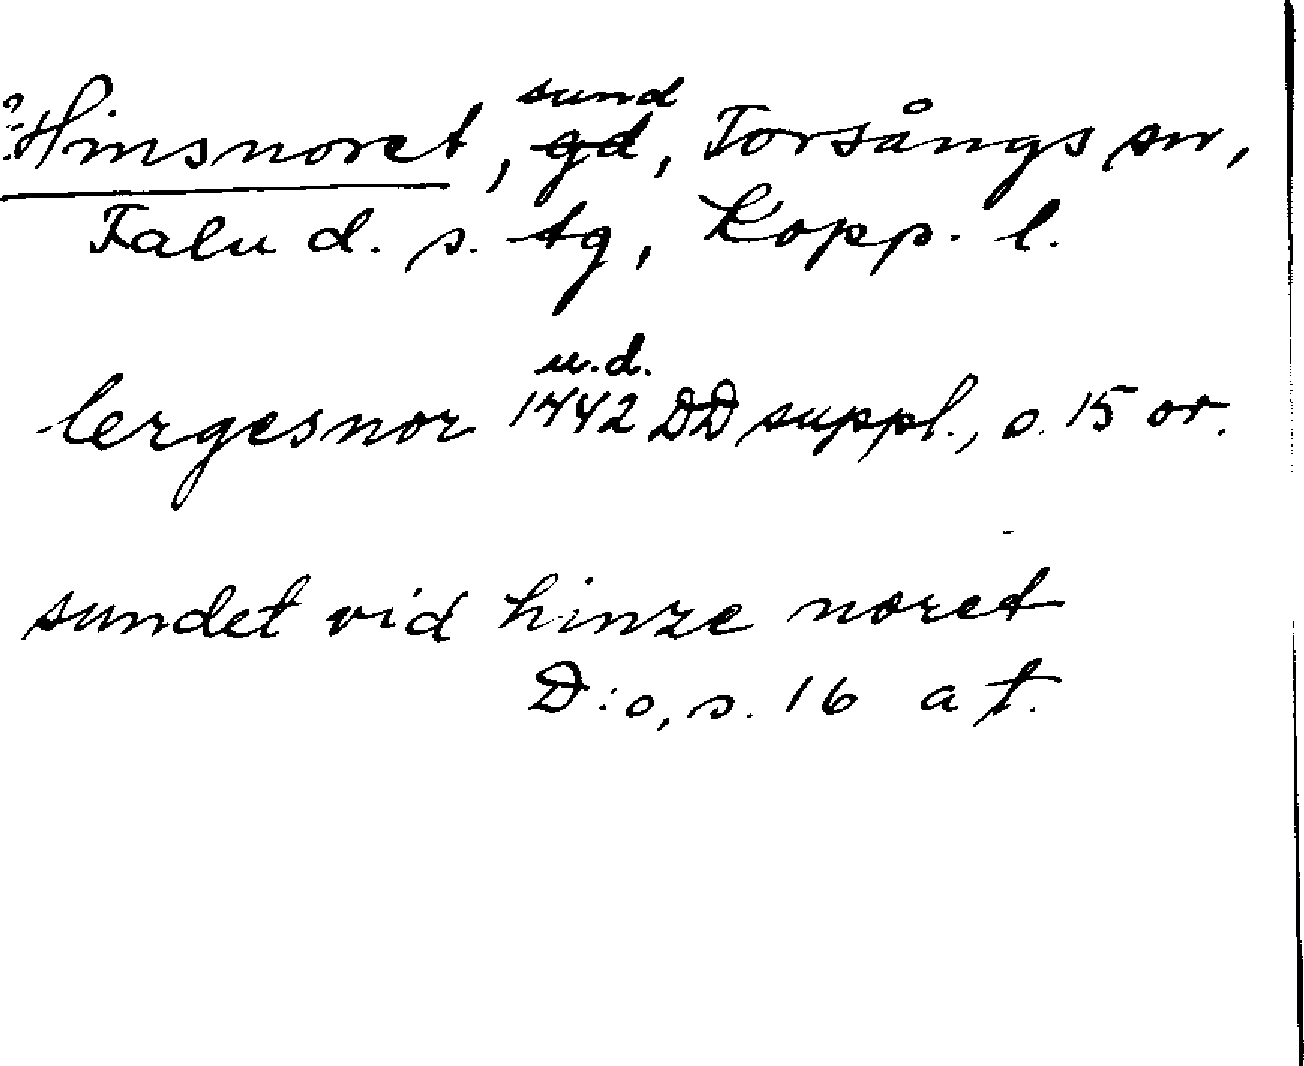 ? Hinsnoret, sund gd, Torsångs sn,
Falu d. s. tg, Kopp. l.
u.d.
lergesnor 1442 DD suppl., s. 15 or.
sundet vid hinze noret
D:o, s. 16 a f.